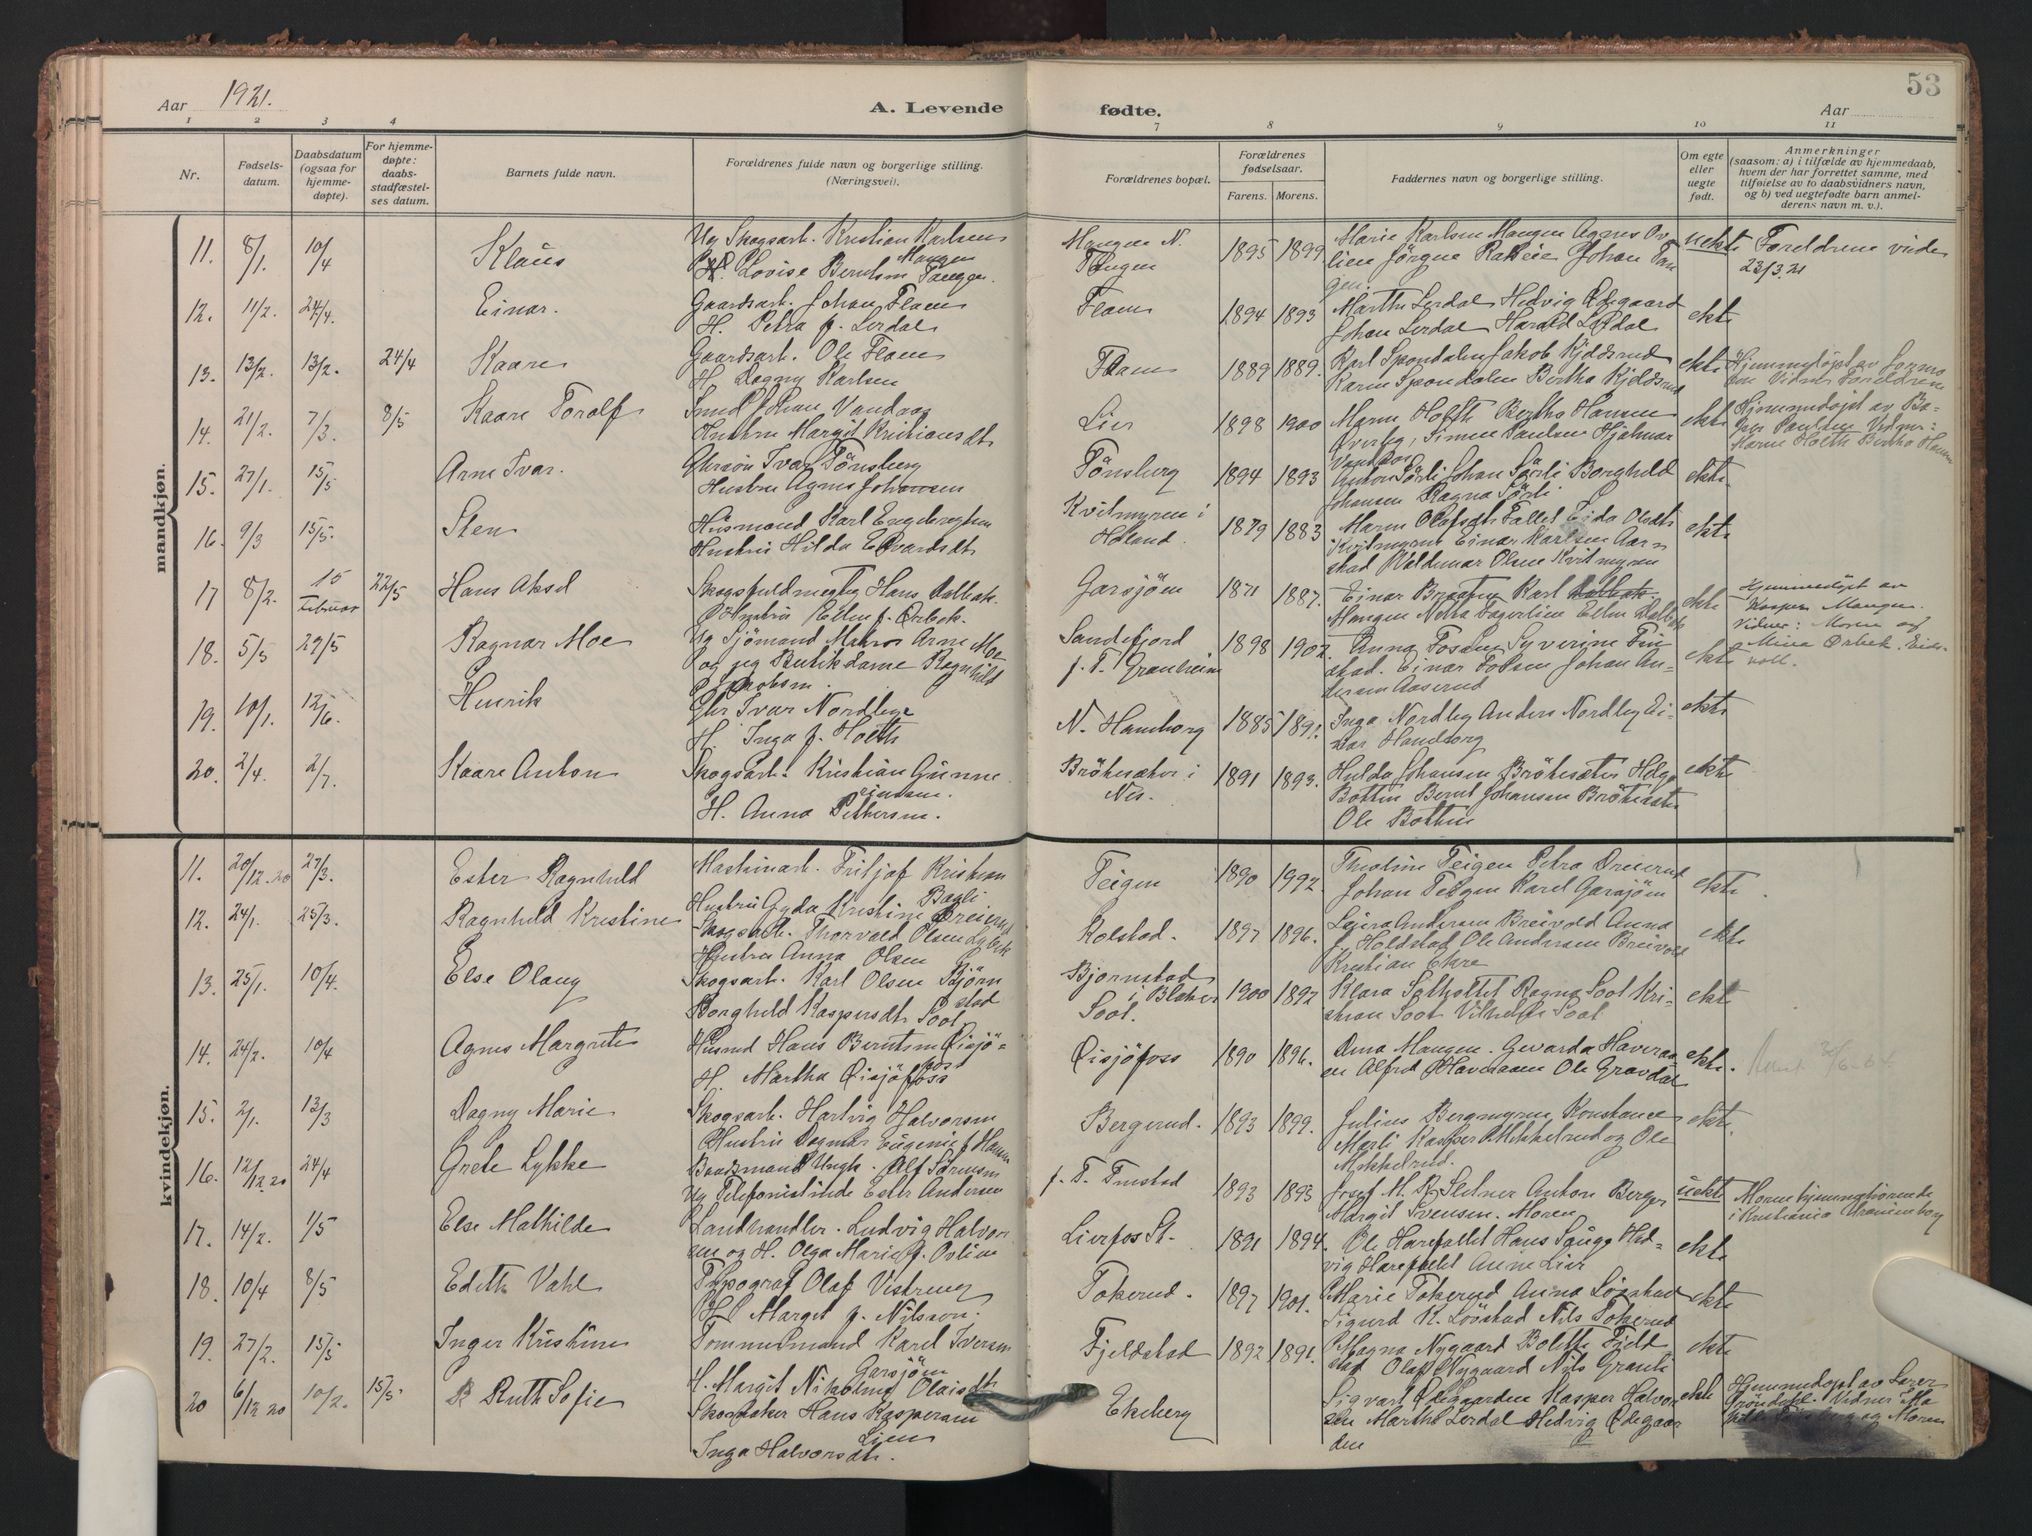 53
Aar 1921.
A. Levende fødte.
Aar
1 2 3 4 7 8 9 10 11
Nr.
Fødsels-
datum.
Daabsdatum
(ogsaa for
hjemme-
døpte).
For hjemme-
døpte:
daabs-
stadfæstel-
ses datum.
Barnets fulde navn.
Forældrenes fulde navn og borgerlige stilling.
(Næringsvei).
Forældrenes bopæl.
Forældrenes
fødselsaar.
Farens. Morens.
Faddernes navn og borgerlige stilling.
Om egte
eller
uegte
født.
Anmerkninger
(saasom: a) i tilfælde av hjemmedaab,
hvem der har forrettet samme, med
tilføielse av to daabsvidners navn,
og b) ved uegtefødte barn anmel-
derens navn m. v.).
mandkjøn.
11. 8/1. 10/4 Klaus
Ug Skogsarb. Kristian Karlsen
Mangen
Lovise Berntsen Tangen.
Mangen N.
Tangen
1895 1899
Marie Karlsen Mangen Agnes Ov-
lien Jörgine Johan Tan
gen
uekte
Foreldrene viede
23/3.21
12. 11/2. 24/4. Einar.
Gaardsarb. Johan Flaen
H. Petra f. Lerdal
Flaen
1894 1893
Marthe Lerdal Hedvig Ødegaard
Johan Lerdal Harald Lerdal
ekte
13. 13/2. 13/2. 24/4 Kaare
Gaardsarb. Ole Flaen
H. Dagny Karlsen
Flaen
1889 1889.
Karl Spondalen Jakob Kjeldsrud
Karen Spondalen Bertha Kjeldsrud
ekte
Hjemmedöpt av
Vidner Foreldrene
14. 21/2. 7/3. 8/5 Kaare Toralf
Smed Johan Vandaas
Hustru Margit Kristiansdt
Lier
1898 1900
Maren Holth Bertha Hansen
Overby, Simen Paulsen Hjalmar
Vandaas
ekte
Hjemmedöpt av
Paulsen Vidner:
Maren Holth Bertha Hansen
15. 27/1. 15/5 Arne Ivar.
Ivar Tönsberg
Hustru Agnes Johansen
Tönsberg
1894 1893
Anton Sörli Johan Sörli Borghild
Johansen Ragna Sörli
ekte
16. 9/3 15/5. Sten
Husmand Karl Engebretsen
Hustru Hilda Edvardsdt
Kvitmyren i
Höland.
1879 1883
Maren Olafsdt Fallet Eida Olsdt
Kvitmyren Einar Karlsen Aar
stad Valdemar Olsen Kvitmyren
ekte
17 8/2. 15 Februar 22/5 Hans Aksel
Skogsfuldmegtig Hans Dalbak.
Hustru Ellen f. Ørbek.
Garsjöen
1871 1887.
Einar Braaten Karl
Mangen Ellen Dalbak
ekte
Hjemmedöpt av
Kasper Mangen.
Vidner: Moren og
Mina Ørbek. Eids-
voll.
18. 5/5 29/5 Ragnar Moe
Ug Sjömand Arne Moe
og Butikdame Ragnhild
Jakobsen.
Sandefjord
f. T. Granheim
1898 1902.
Anna Fossen Syverine Fin
stad. Einar Johan An-
dersen Aaserud
ekte
19. 10/1. 12/6. Henrik
Ivar Nordbye
H. Inga f. Holth
N. Hamborg
1885
Inga Nordby Anders Nordby Ei-
nar Hamborg
ekte
20. 2/4. 2/7. Kaare Anton
Skogsarb. Kristian Gunne
H. Anna Pettersen.
Brötesæter i
Nes.
1891 1893.
Hulda Johansen Brötesæter Helge
Botten Bernt Johansen Brötesæter
Ole Botten
ekte
kvindekjøn.
11. 20/12.20 27/3. Ester Ragnhild
Maskinarb. Fritjof Kristian
Bagli
Hustru Gyda Kristine Dreierud
Teigen
1890 1992.
Thestine Teigen Petra Dreierud
Johan Teigen Karel Garsjöen
ekte
12. 24/1. 25/3. Ragnhild Kristine
Skogsarb. Thorvald Olsen
Hustru Anna Olsen
Kolstad.
1897 1896.
Andersen Breivold Anna
Holdstad Ole Andersen Breivold
Kristian Ekre
ekte
13. 25/1. 10/4. Else Olaug
Skogsarb. Karl Olsen Björn
stad
Borghild Kaspersdt Soot.
Bjornstad
i Blaker
Soot.
1900 1897
Klara Ragna Soot Kri-
stian Soot Vilhelm Soot
ekte
14. 24/2. 10/4 Agnes Margrete
Husmd Hans Berntsen Öisjö-
foss
H. Martha Öisjöfoss
Öisjöfoss
1890 1896.
Dina Mangen. Gevarda Haveraa-
en Alfred Haveraaen Ole Gravdal
ekte.
15. 2/1. 13/3 Dagny Marie
Skogsarb. Hartvig Halvorsen
Hustru Dagmar Eugenie f Hansen
Bergerud.
1893 1899.
Julius Bergmyren Konstance
Marli Kasper Mikkelrud og Ole
Mikkelrud.
ekte.
16. 12/12.20 24/4 Grete Lykke
Baadsmand Ungk. Alf Sörensen
Ug Telefonistinde Ester Andersen
f. T. Finstad
1893 1895
Josef M. R. Sletner Anton Berger
Margit Svensen. Moren
uekte
Moren hjemmehörende
i Kristiania Uranienborg
17. 14/2. 1/5 Else Mathilde
Landhandler. Ludvig Halvor
sen og H. Olga Marie f. Ovlien
Lierfoss St.
1891 1894.
Ole Harefallet Hans Hed-
vig Harefallet Anne Lier
ekte
18. 10/4 8/5 Edith Vahl
Typograf Olaf Vistreng
H. Margit f. Nilsson.
Tokerud.
1897 1901.
Marie Tokerud Anna Löystad
Sigurd K. Nils Tokerud
ekte
19. 27/2. 15/5 Inger Kristine
Tömmermand Karel Iversen
Garsjöen
H. Margit Nikoline Olaisdt
Fjeldstad
1892 1891.
Magna Nygaard Bolette Fjeld
stad Olaf Nygaard Nils Granli
ekte
20 6/12 20 10/2. 15/5. Ruth Sofie
Skomaker Hans Kaspersen
Lien
Inga Halvorsdt.
Ekeberg
Sigvart Ødegaarden Kasper Halvor
sen Marthe Lerdal Hedvig Ødegaar
den
ekte
Hjemmedöpt av Lærer
Vidner
og Moren